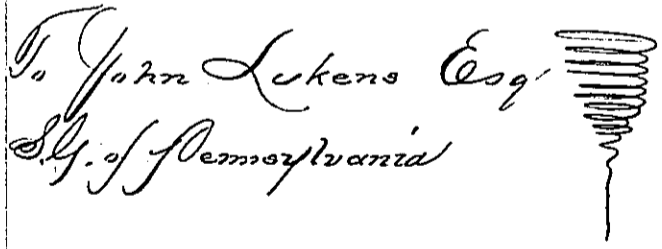 To John Lukens Esqr
S.G. of Pennsylvania